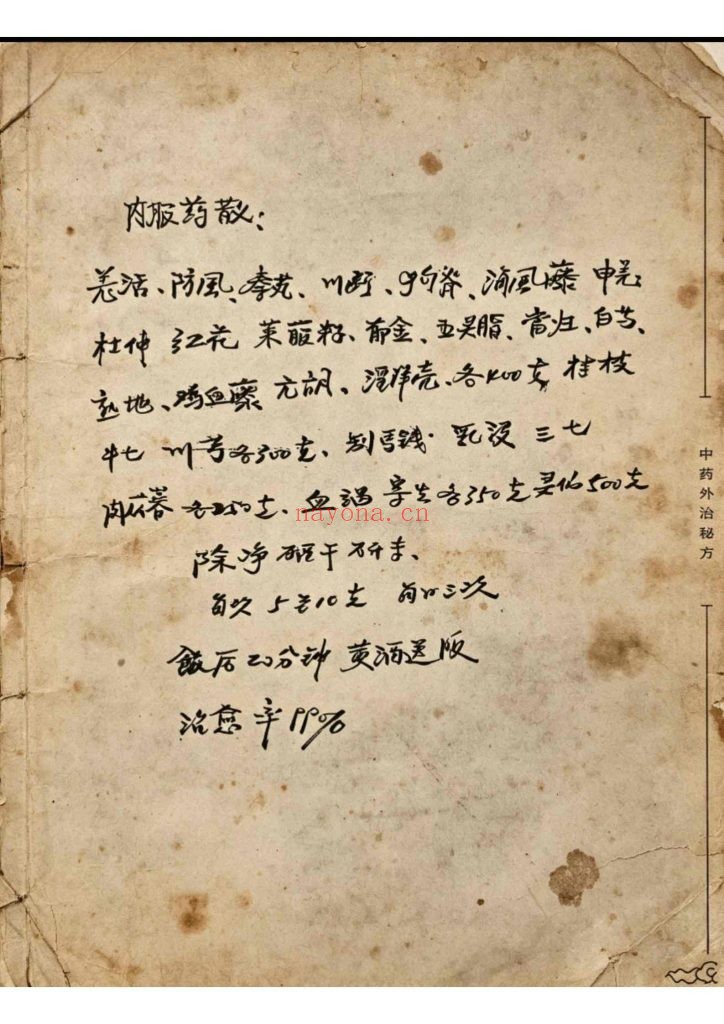 内服药散：
羌活、防風、秦艽、川断、狗脊、海風藤 申羌
杜仲 红花 莱菔籽、郁金、五灵脂、当归、白芍、
熟地、鸡血藤 元胡、各400克 桂枝
牛七 川芎各300克、制马钱 乳没 三七
肉苁蓉 各250克、血竭 寄生各350克 灵仙500克
除净 晒干 研末、
每次 5至10克 每日三次
飯后20分钟 黄酒送服
治愈率99%
nayona.cn
中药外治秘方